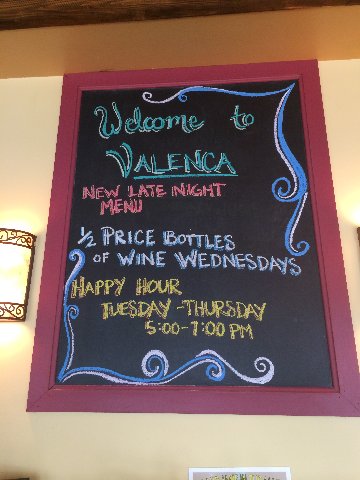 Welcome to
VALENCA
NEW LATE NIGHT
MENU
1/2 PRICE BOTTLES
OF WINE WEDNESDAYS
HAPPY HOUR
TUESDAY-THURSDAY
5:00-7:00 PM